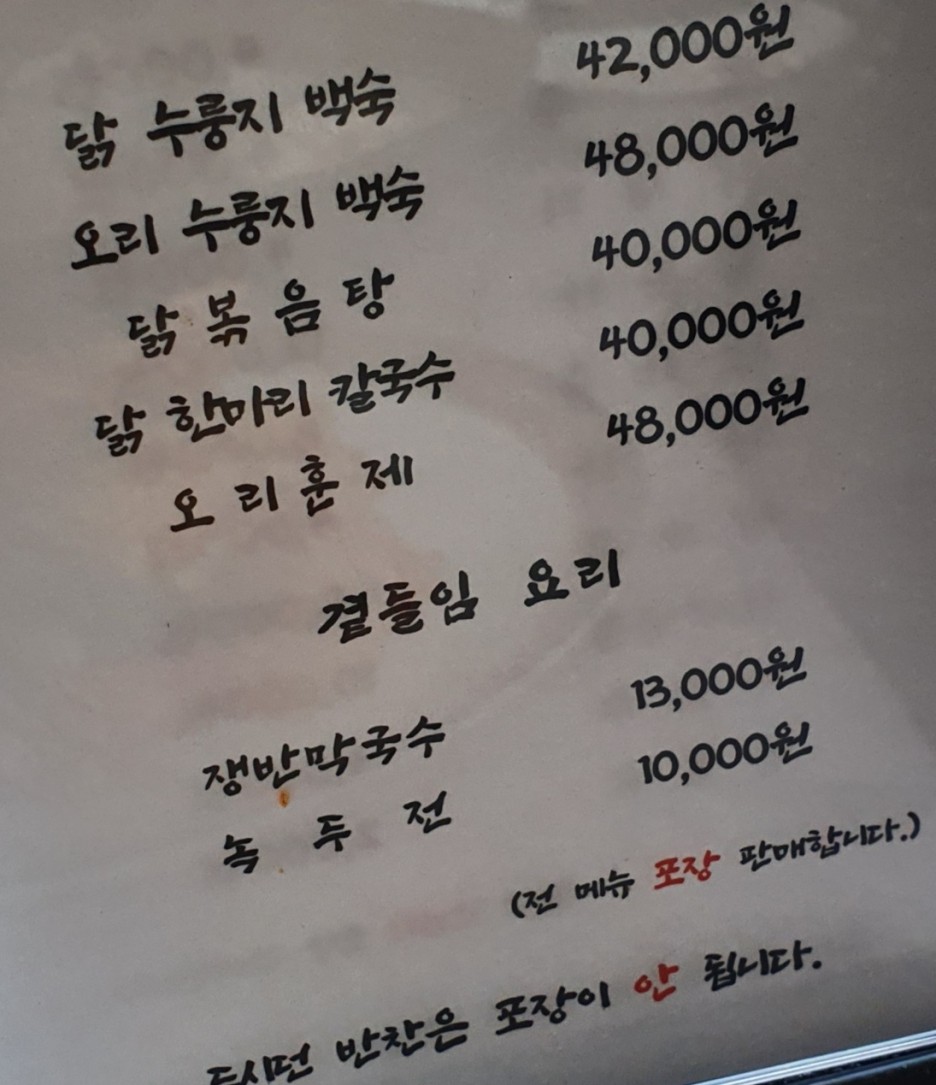 닭 누룽지 백숙 42,000원
오리 누룽지 백숙 48,000원
닭 볶음탕 40,000원
닭 한마리 칼국수 40,000원
오리훈제 48,000원
곁들임 요리
쟁반막국수 13,000원
녹두전 10,000원
(전 메뉴 포장 판매합니다.)
반찬은 포장이 안 됩니다.